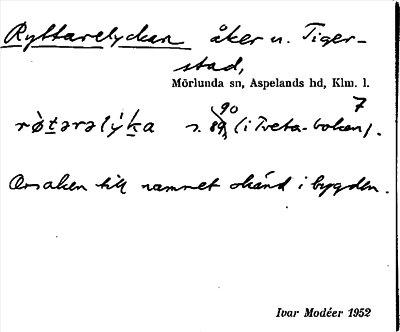 Ryttarelyckan åker u. Tiger-
stad,
Mörlunda sn, Aspelands hd, Klm. l.
90 7
s. 89, (i Tveta-boken).
Orsaken till namnet okänd i bygden.
Ivar Modéer 1952